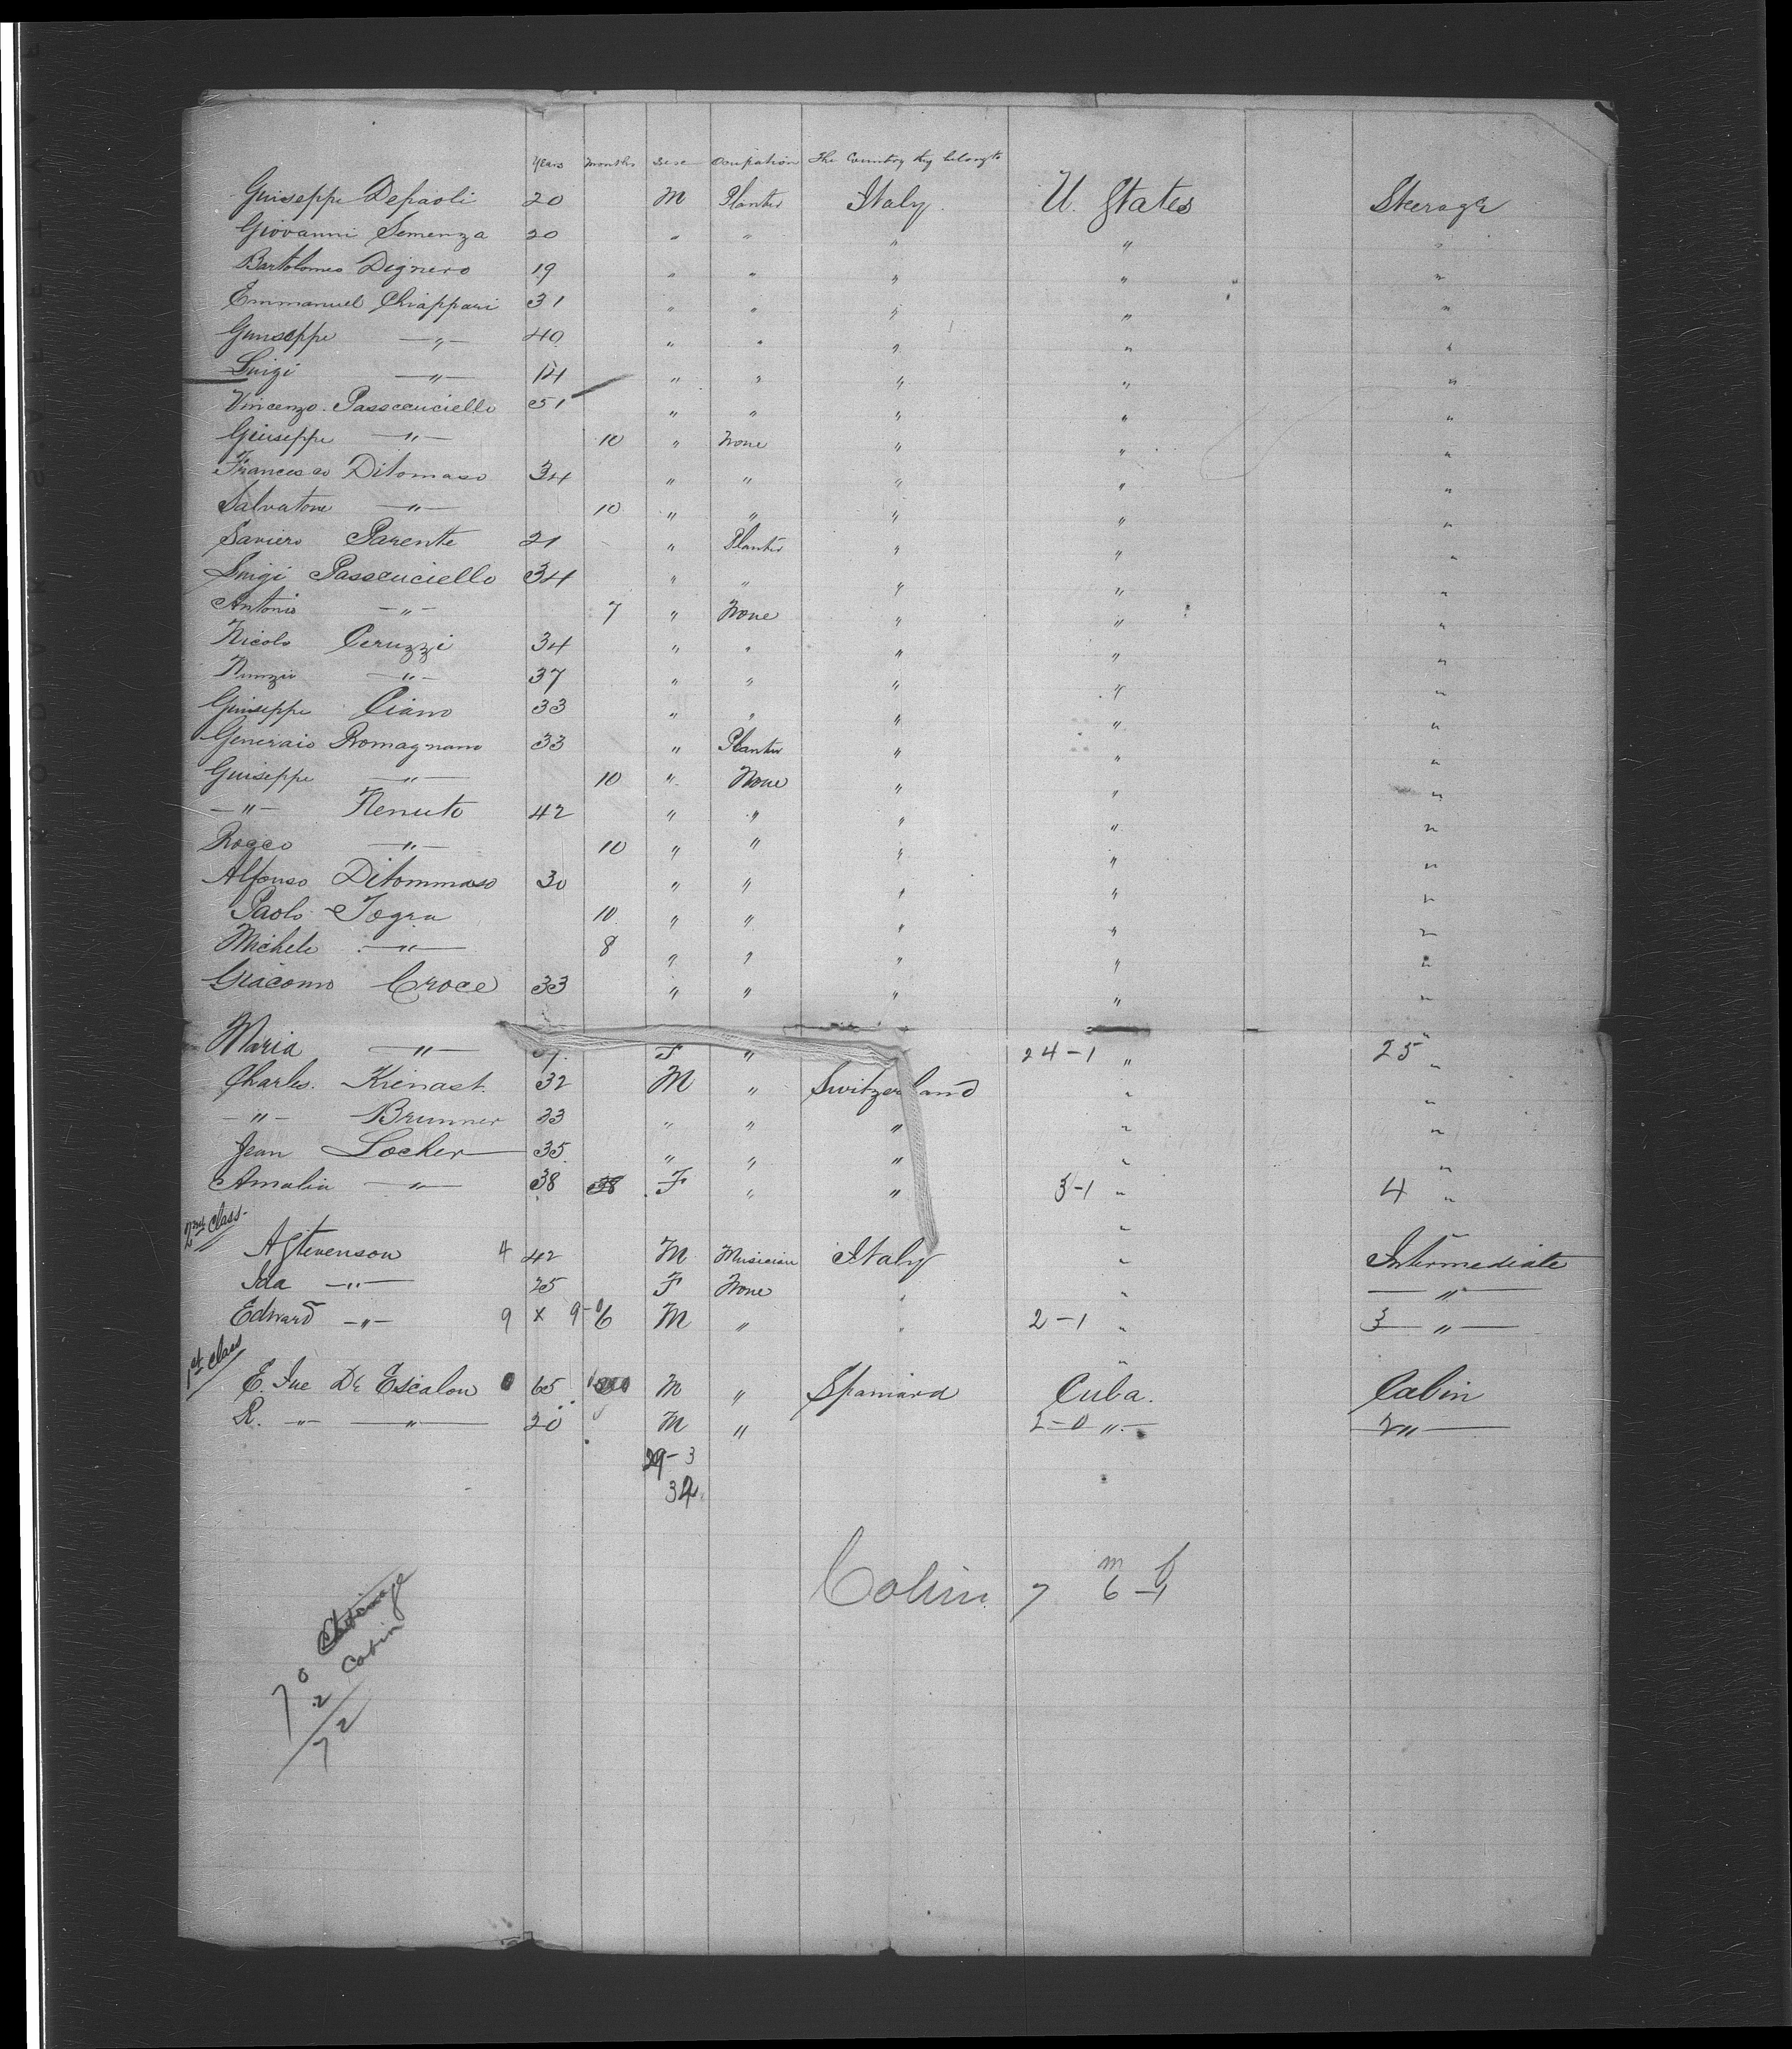 Years Months Sexe Occupation The Country they belong to
Guiseppe Depaoli 20 M Planter Italy. U. States Steerage
Giovanni Semenza 20 " " " " "
Bartolomeo Dignero 19 " " " " "
Emmanuel Chiappari 31 " " " " "
Guiseppe —"— 40 " " " " "
Luigi —"— 14 " " " " "
Vincenzo Passeuciello 51 " " " " "
Giuseppe —"— 10 " None " " "
Francesco Ditomaso 34 " " " " "
Salvatore —"— 10 " " " " "
Saviero Parente 21 " Planter " " "
Luigi Passeuciello 34 " " " " "
Antonio —"— 7 " None " " "
Nicolo Ceruzzi 34 " " " " "
Nunzio —"— 37 " " " " "
Giuseppe Ciano 33 " " " " "
Generaio Romagnano 33 " Planter " " "
Guiseppe —"— 10 " None " " "
—"— Nenuto 42 " " " " "
Rocco —"— 10 " " " " "
Alfonso Ditommaso 30 " " " " "
Paolo Togra 10 " " " " "
Michele —"— 8 " " " " "
Giacomo Croce 33 " " " " "
Maria —"— F " 24-1 " 25 "
Charles. Kienast. 32 M " Switzerland " "
—"— Brunner 33 " " " " "
Jean Locher 35. " " " " "
Amalia —"— 38 38 F " " 3-1 " 4 "
2nd Class-
A Stevenson 4 42 M Musician Italy " Intermediate
Ida —"— 25 F None " " —"—
Edward —"— 9 x 9- 6 M " " 2-1 " 3 —"—
1st Class
E. Jue De Escalon 0 65 M " Spaniard Cuba. Cabin
R. " —"— 20 M " 2-0 " 2 "
29-3
32
m f
Cabin 7 6-1
70 Steerage
2 Cabin
72